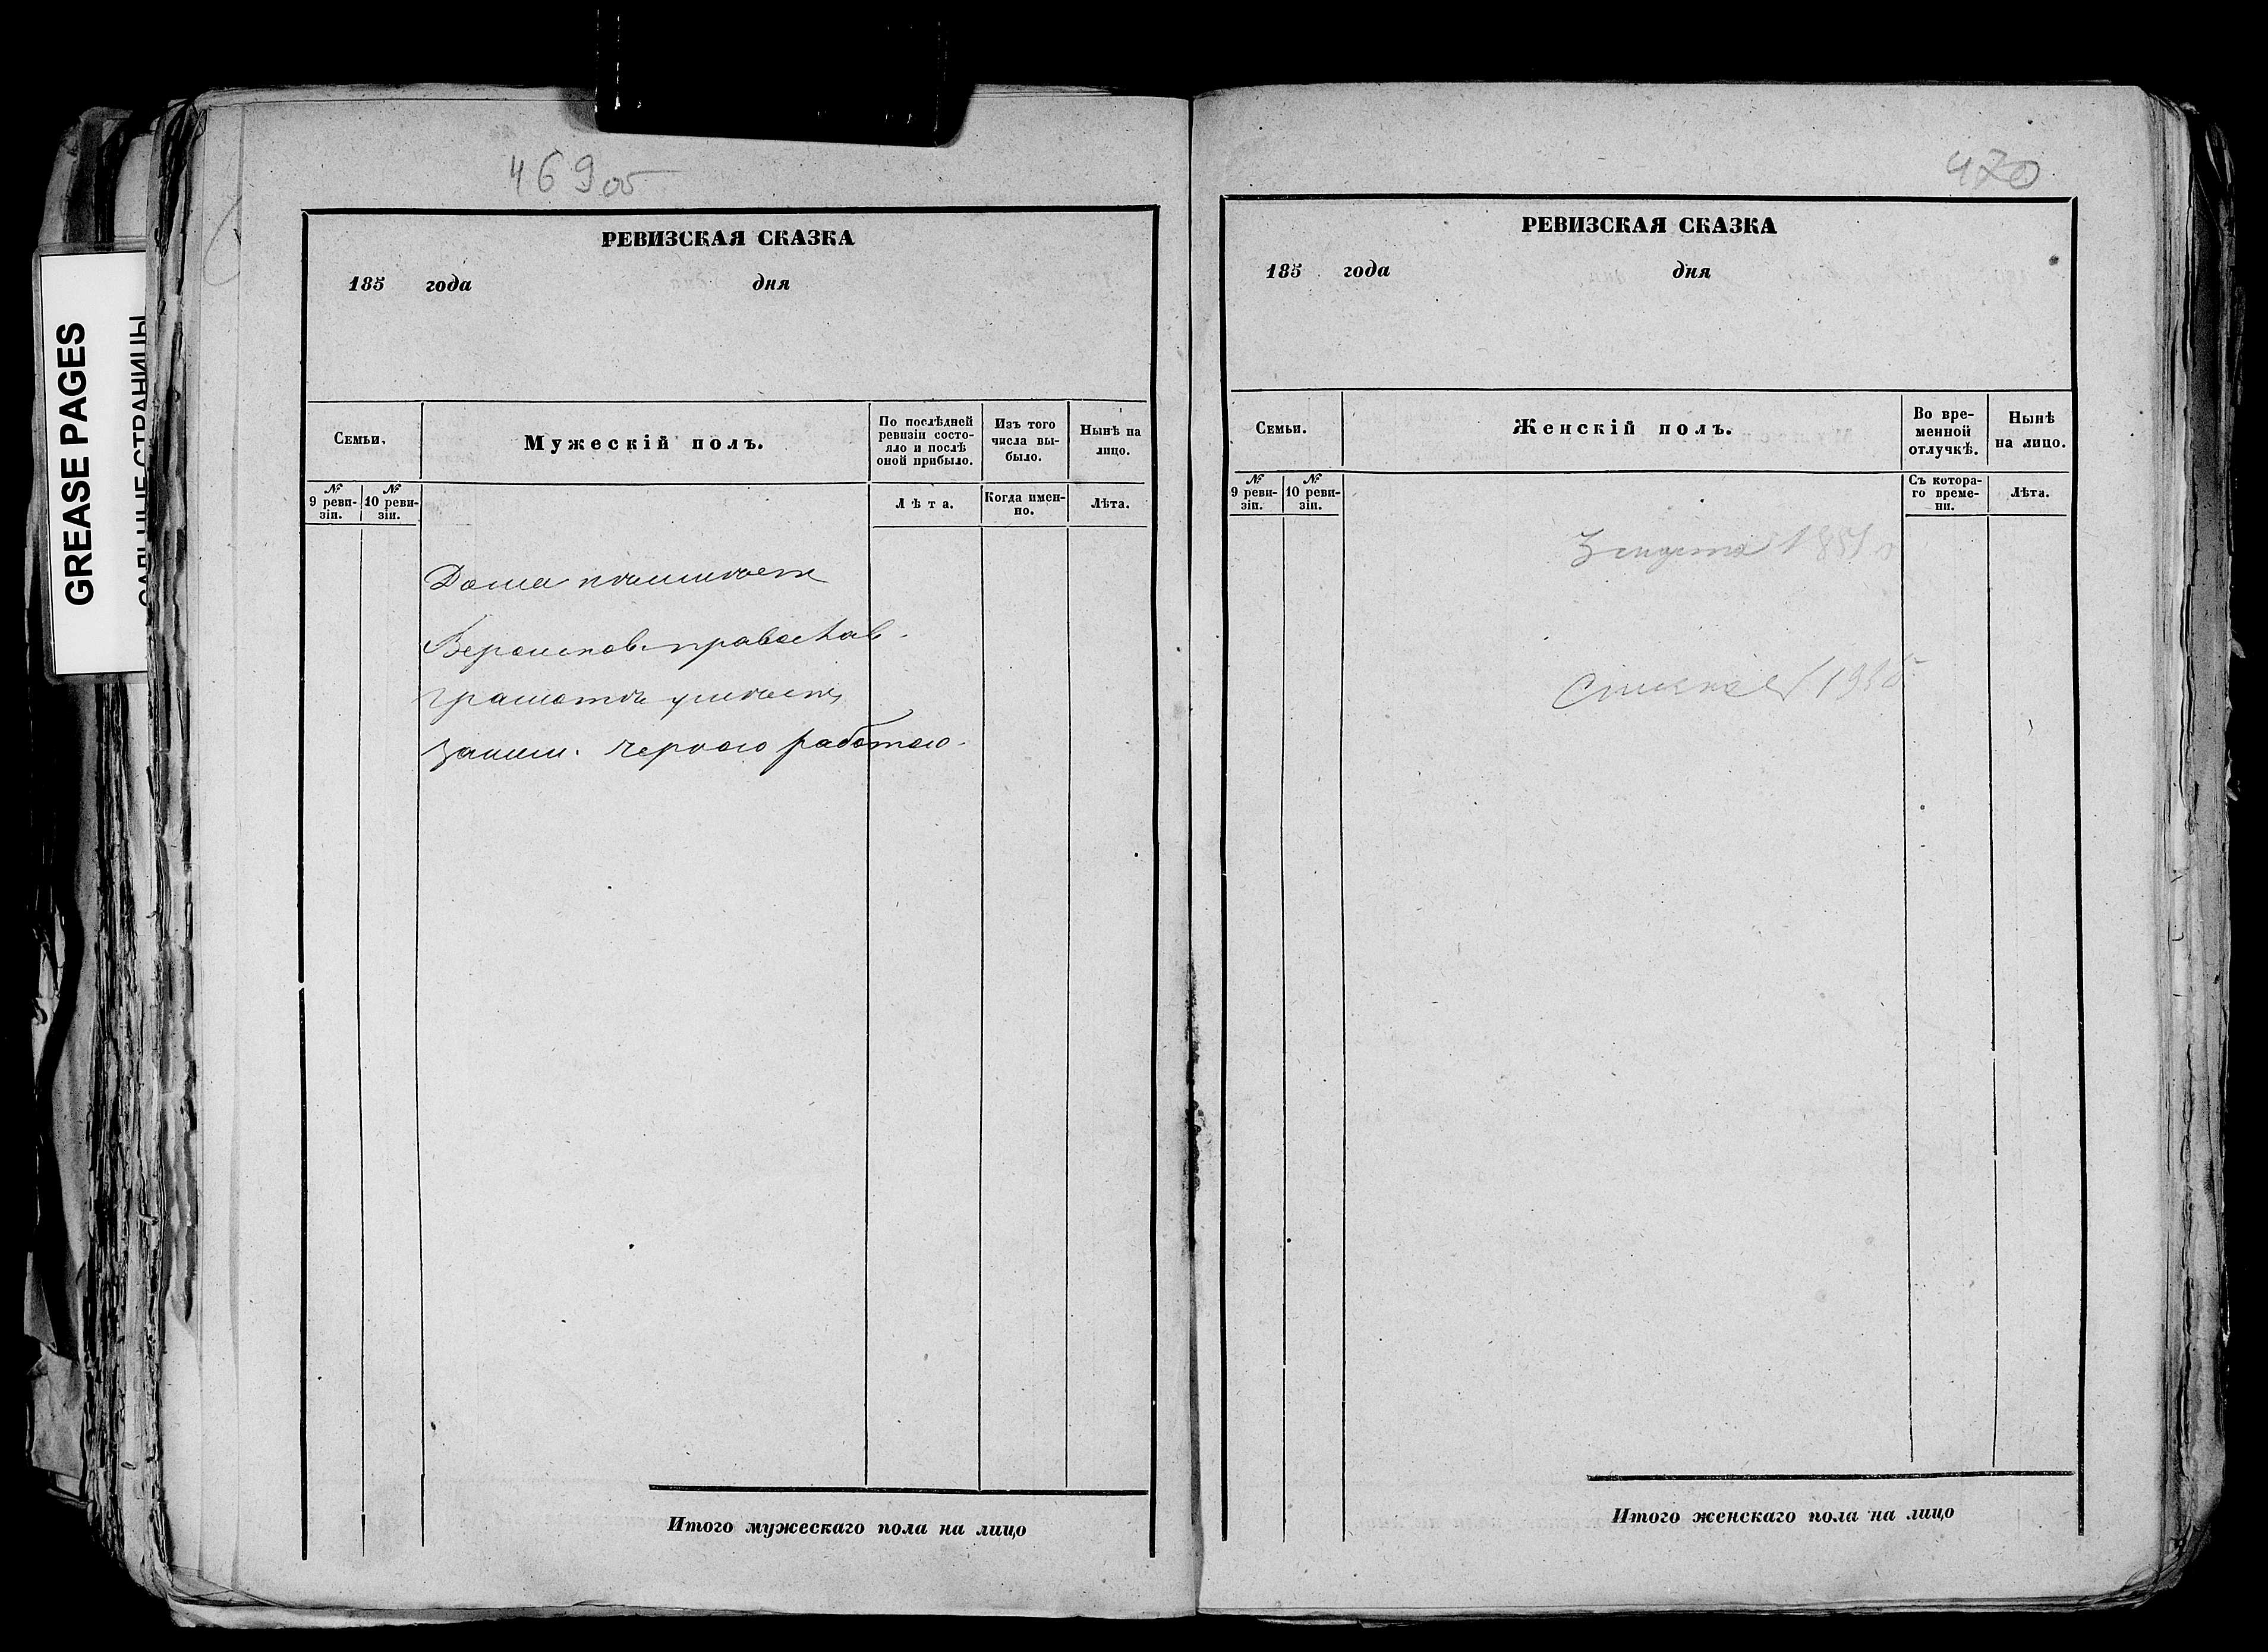 GREASE PAGES
САЛЬНЫЕ СТРАНИЦЫ
469 об
РЕВИЗСКАЯ СКАЗКА
185 года дня
Семьи.
Мужескій полъ.
По послѣдней
ревизіи состо-
яло и послѣ
оной прибыло.
Изъ того
числа вы-
было.
Нынѣ на
лицо.
№
9 реви-
зіи.
№
10 реви-
зіи.
Лѣта.
Когда имен-
но.
Лѣта.
Дома неимѣетъ
Вероисповѣ. православ.
грамотѣ умѣетъ,
заним. черною работою.
Итого мужескаго пола на лицо
470
РЕВИЗСКАЯ СКАЗКА
185 года дня
Семьи.
Женскій полъ.
Во вре-
менной
отлучкѣ.
Нынѣ
на лицо.
№
9 реви-
зіи.
№
10 реви-
зіи.
Съ котора-
го време-
ни.
Лѣта.
Итого женскаго пола на лицо